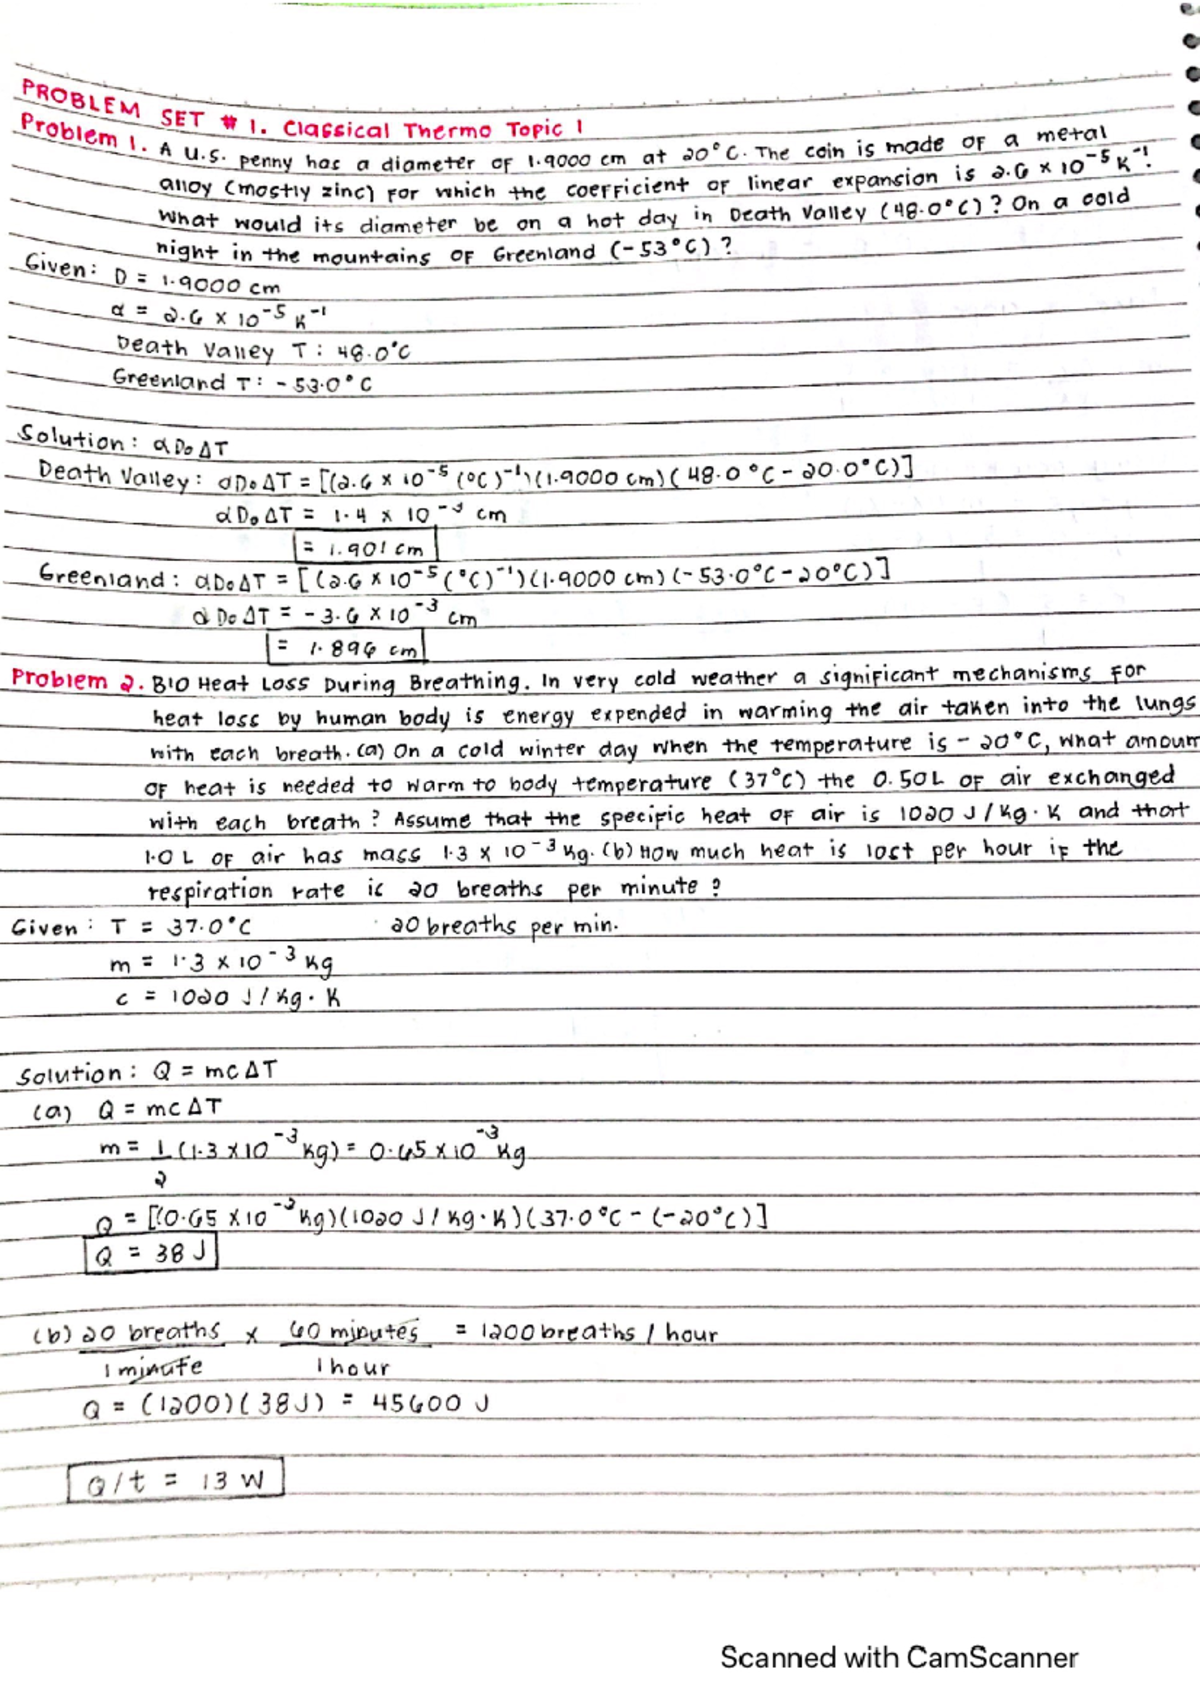 PROBLEM SET # 1. Classical Thermo Topic 1
Problem 1. A U.S. penny has a diameter of 1.9000 cm at 20°C. The coin is made of a metal
alloy (mostly zinc) for which the coefficient of linear expansion is 2.6 × 10⁻⁵ K⁻¹.
What would its diameter be on a hot day in Death Valley (48.0°C)? On a cold
night in the mountains of Greenland (-53°C)?
Given: D = 1.9000 cm
α = 2.6 × 10⁻⁵ K⁻¹
Death Valley T: 48.0°C
Greenland T: -53.0°C
Solution: αD₀ΔT
Death Valley: αD₀ΔT = [(2.6 × 10⁻⁵ (°C)⁻¹)(1.9000 cm)(48.0°C - 20.0°C)]
αD₀ΔT = 1.4 × 10⁻³ cm
= 1.901 cm
Greenland: αD₀ΔT = [(2.6 × 10⁻⁵ (°C)⁻¹)(1.9000 cm)(-53.0°C - 20°C)]
αD₀ΔT = -3.6 × 10⁻³ cm
= 1.896 cm
Problem 2. BIO Heat Loss During Breathing. In very cold weather a significant mechanisms for
heat loss by human body is energy expended in warming the air taken into the lungs
with each breath. (a) On a cold winter day when the temperature is -20°C, what amount
of heat is needed to warm to body temperature (37°C) the 0.50L of air exchanged
with each breath? Assume that the specific heat of air is 1020 J/kg·K and that
1.0 L of air has mass 1.3 × 10⁻³ kg. (b) How much heat is lost per hour if the
respiration rate is 20 breaths per minute?
Given: T = 37.0°C 20 breaths per min.
m = 1.3 × 10⁻³ kg
c = 1020 J/kg·K
Solution: Q = mcΔT
(a) Q = mcΔT
m = 1/2 (1.3 × 10⁻³ kg) = 0.65 × 10⁻³ kg
Q = [(0.65 × 10⁻³ kg)(1020 J/kg·K)(37.0°C - (-20°C)]
Q = 38 J
(b) 20 breaths × 60 minutes = 1200 breaths / hour
1 minute 1 hour
Q = (1200)(38J) = 45600 J
Q/t = 13 W
Scanned with CamScanner